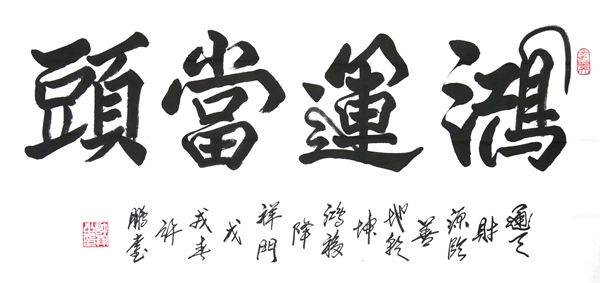 鴻運當頭
通天
財
源臨
善
地乾
坤
鴻福
降
祥門
戊
戌春
許
鵬書